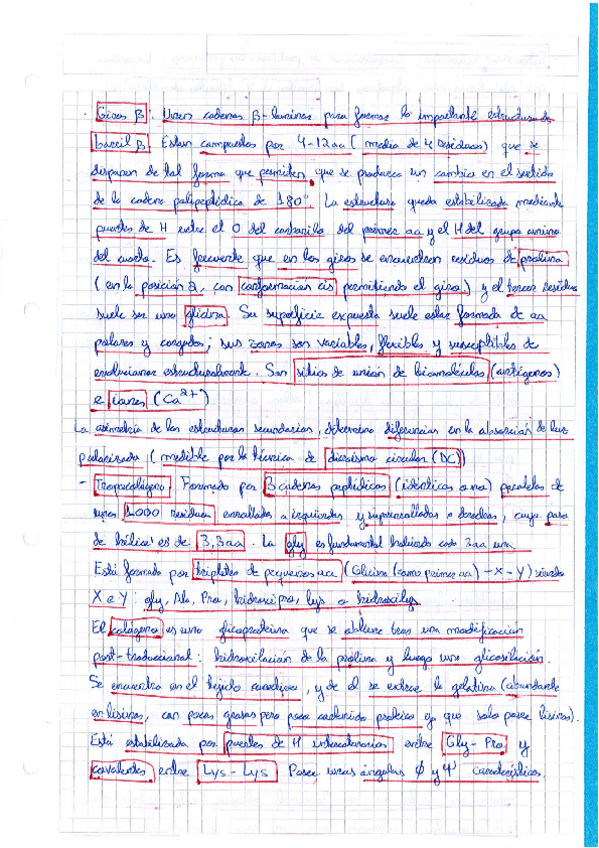 · Giros β: Unen cadenas β-láminas para formar la importante estructura de
barril β. Están compuestos por 4-12aa (media de 4 residuos) que se
disponen de tal forma que permiten que se produzca un cambio en el sentido
de la cadena polipeptídica de 180°. La estructura queda estabilizada mediante
puentes de H entre el O del carbonilo del primer aa y el H del grupo amino
del cuarto. Es frecuente que en los giros se encuentren residuos de prolina
(en la posición 2, con conformación cis permitiendo el giro) y el tercer residuo
suele ser una glicina. Su superficie expuesta suele estar formada de aa
polares y cargados; sus zonas son variables, flexibles y susceptibles de
evolucionar estructuralmente. Son sitios de unión de biomoléculas (antígenos)
e iones (Ca²⁺)
La asimetría de las estructuras secundarias, determina diferencias en la absorción de luz
polarizada (medible por la técnica de dicroísmo circular (DC))
- Tropocolágeno: Formado por 3 cadenas peptídicas (idénticas o no) paralelas de
unos 1000 residuos enrolladas a izquierdas y superenrolladas a derechas, cuyo paso
de hélice es de 3,3aa. La gly es fundamental habiendo cada 3aa una
Está formado por tripletes de pequeños aa (Glicina (como primer aa) - X - Y) siendo
X e Y: gly, Ala, Pro, hidroxipro, lys o hidroxilys
El colágeno es una glicoproteína que se obtiene tras una modificación
post-traduccional: hidroxilación de la prolina y luego una glicosilación.
Se encuentra en el tejido conectivo, y de él se extrae la gelatina (abundante
en lisinas, con pocas grasas pero poco contenido proteico ya que solo posee lisinas).
Está estabilizada por puentes de H intercatenarios entre Gly-Pro y
covalentes entre Lys-Lys. Posee unos ángulos ϕ y Ψ característicos.